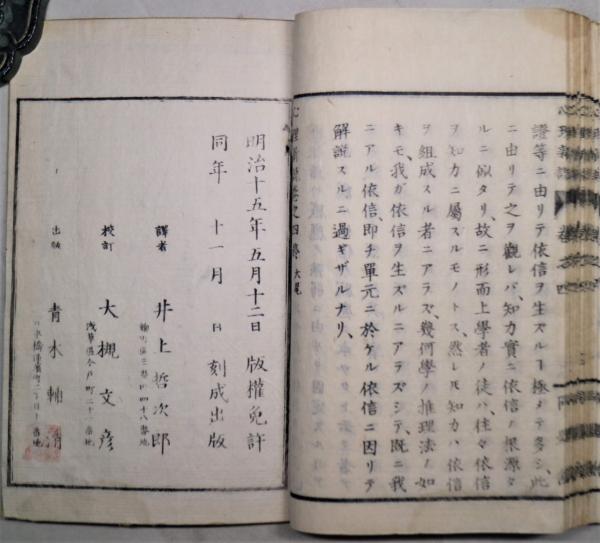 證等ニ由リテ依信ヲ生ズルヿ極メテ多シ、此
ニ由リテ之ヲ觀レバ、知力實ニ依信ノ根源タ
ルニ似タリ、故ニ形而上學者ノ徒ハ、往々依信
ヲ知力ニ屬スルモノトス、然レ𪜈知力ハ依信
ヲ組成スル者ニアラズ、幾何學ノ推理法ノ如
キモ、我ガ依信ヲ生ズルニアラズシテ、既ニ我
ニアル依信、即チ單元ニ於ケル依信ニ因リテ
解説スルニ過ギザルナリ、
心理新説卷之四終 大尾
明治十五年五月十二日 版權免許
同年 十一月 日 刻成出版
譯者 井上哲次郎
校訂 大槻文彦
淺草區今戸町二十一番地
出版 青木輔清